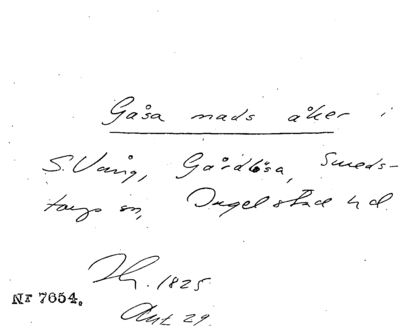 Gåsa mads åker i
S. Vång, Gårdlösa, Smeds-
torps sn, Ingelstad hd.
Sk. 1825
Nr 7654.
Ant 29